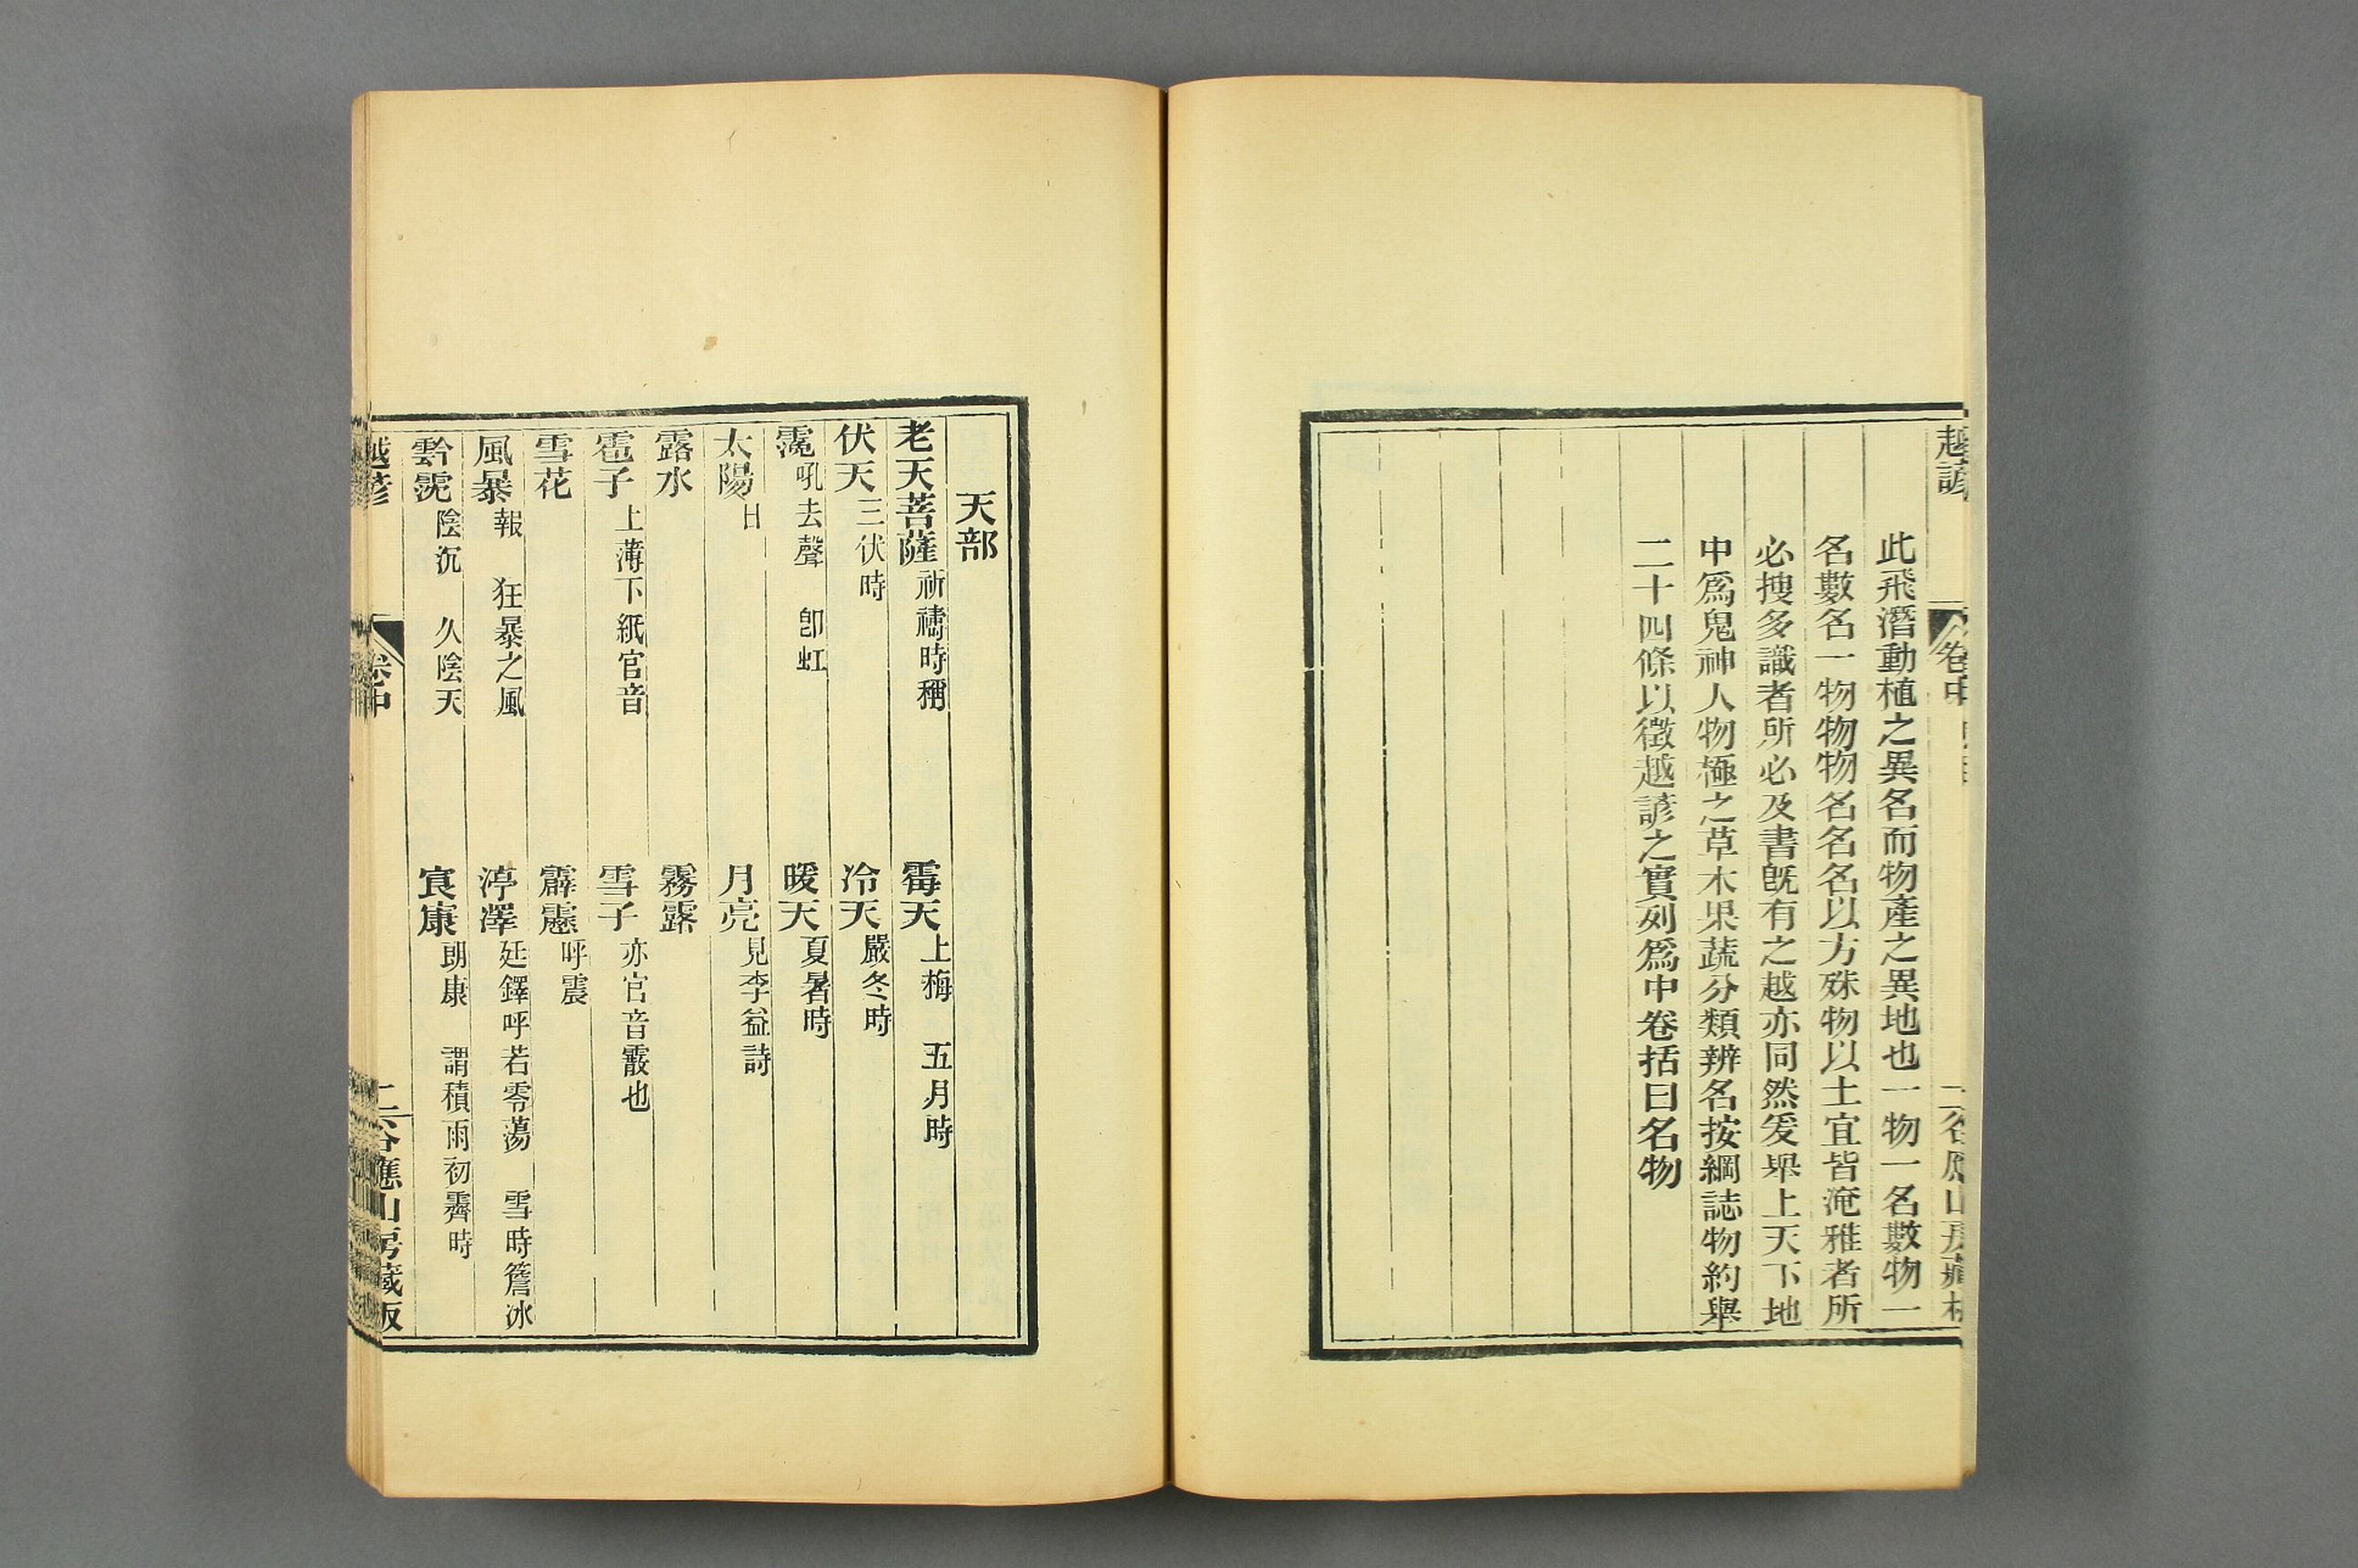 越諺 卷中
此飛潛動植之異名而物產之異地也一物一名數物一
名數名一物物物名名名以方殊物以土宜皆淹雅者所
必搜多識者所必及書旣有之越亦同然爰舉上天下地
中爲鬼神人物極之草木果蔬分類辨名按綱誌物約舉
二十四條以徵越諺之實列爲中卷括曰名物
天部
老天菩薩 祈禱時稱 霉天 上梅 五月時
伏天 三伏時 冷天 嚴冬時
雿 吼去聲 卽虹 暖天 夏暑時
太陽 日 月亮 見李益詩
露水 霧露
雹子 上薄下紙官音 雪子 亦官音霰也
雪花 霹靂 呼震
風暴 報 狂暴之風 渟澤 廷鐸呼若零蕩 雪時簷冰
霒霃 陰沉 久陰天 㝗康 朗康 謂積雨初霽時
越諺 卷中 谷應山房藏板